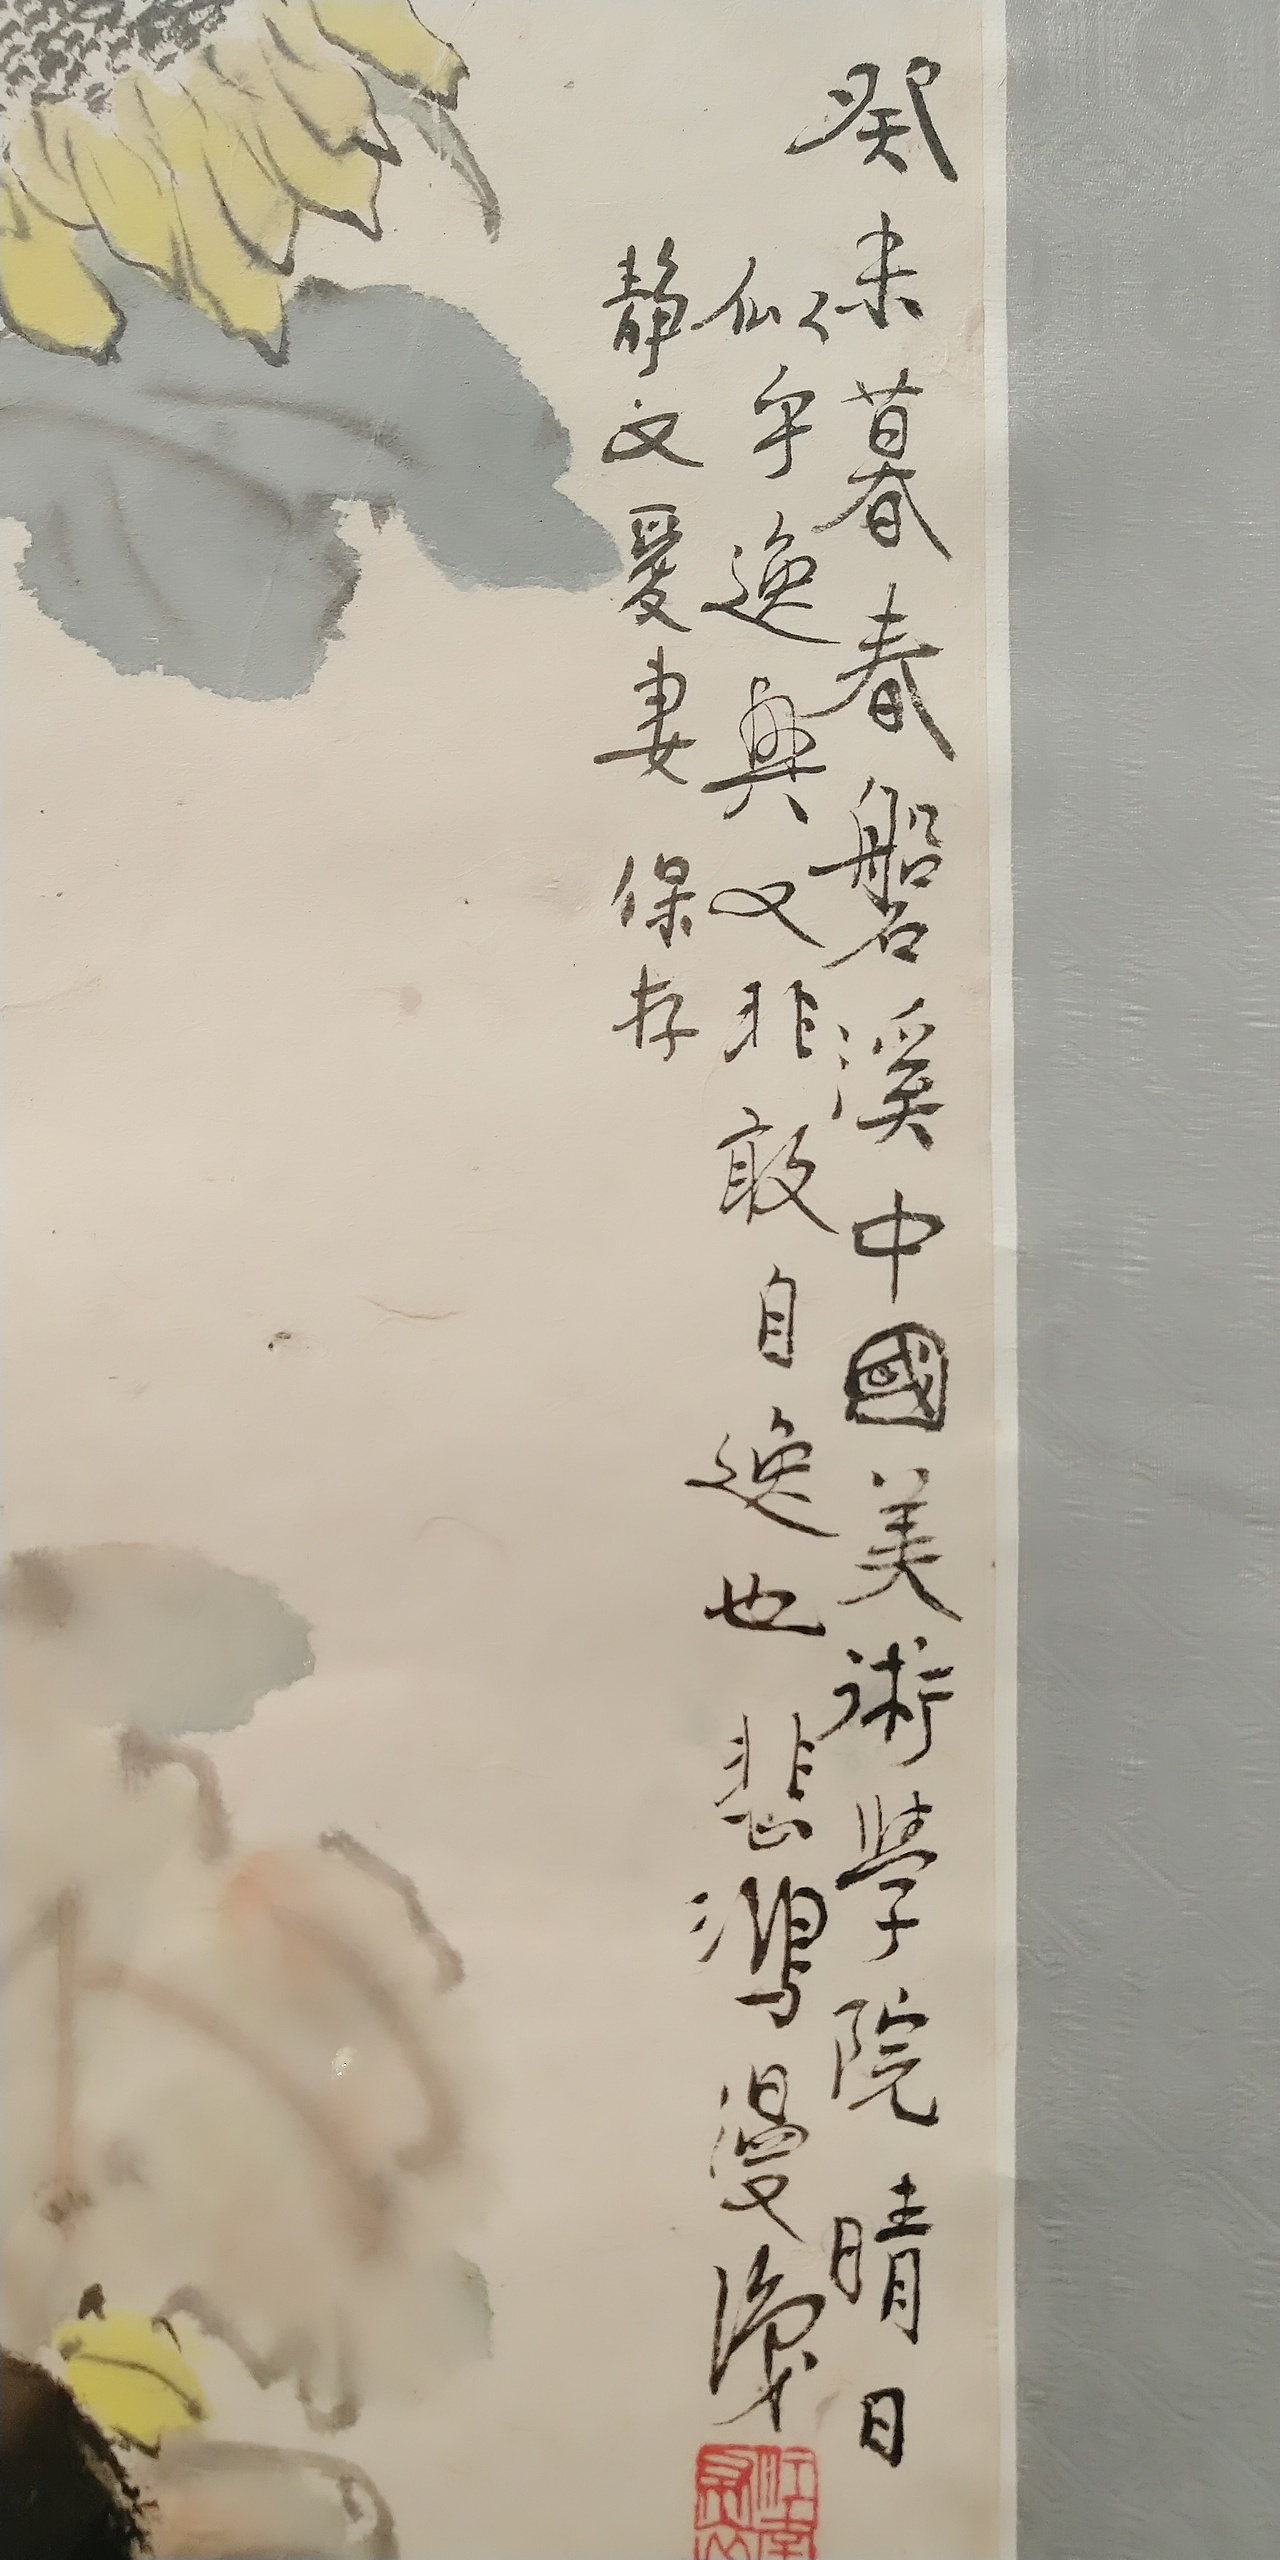 癸未暮春磐溪中國美術學院晴日
仙乎逸興又非敢自逸也悲鴻漫
靜文愛妻保存